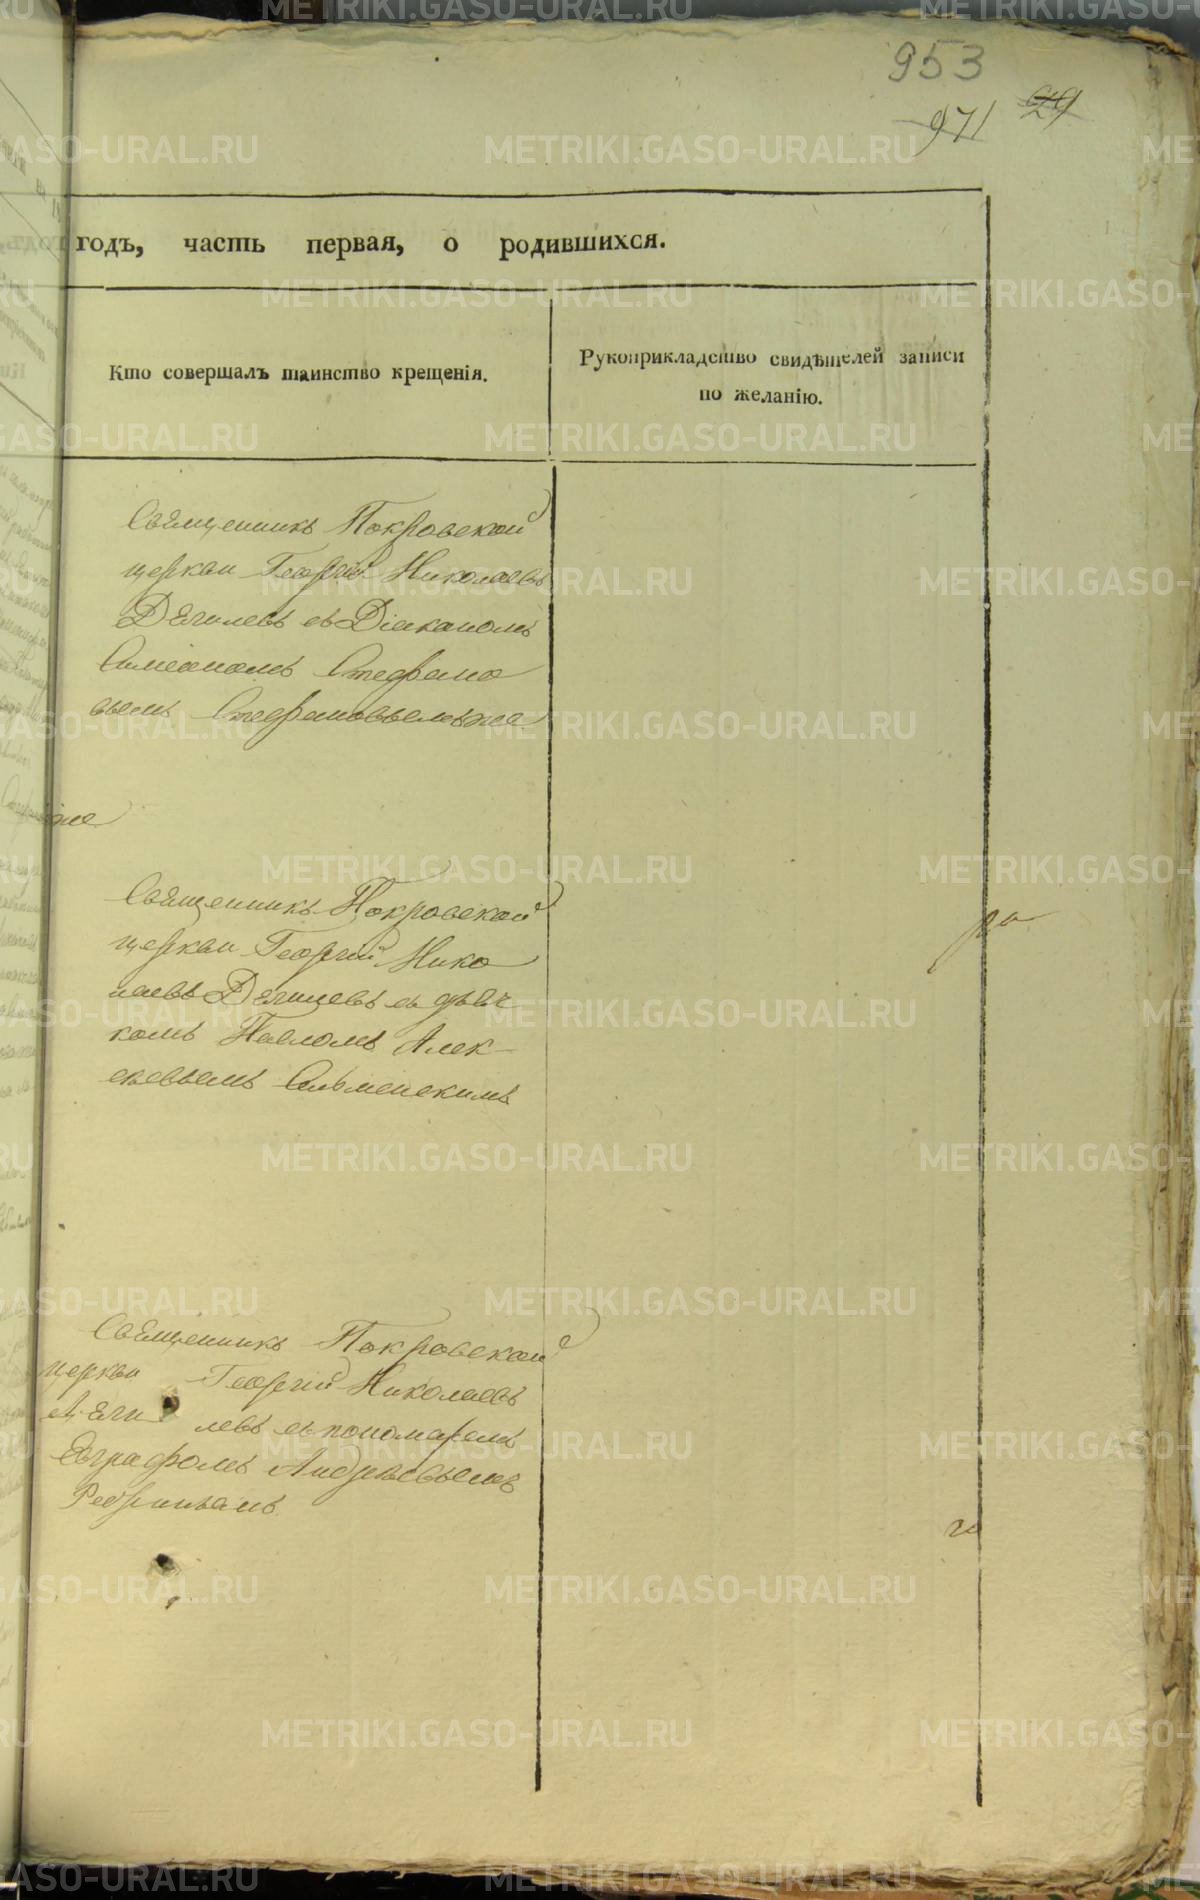 953
971 29
годъ, часть первая, о родившихся.
Кто совершалъ таинство крещенія.
Рукоприкладство свидѣтелей записи
по желанію.
Священникъ Покровской
церкви Георгій Николаевъ
Дягилевъ съ Діакономъ
Симеономъ Стефано
вымъ Стефановскимъ
Священникъ Покровской
церкви Георгій Нико
лаевъ Дягилевъ съ дьяч
комъ Павломъ Алек-
сѣевымъ
Священникъ Покровской
церкви Георгій Николаевъ
Дяги левъ съ пономаремъ
Евграфомъ Андреевымъ
METRIKI.GASO-URAL.RU